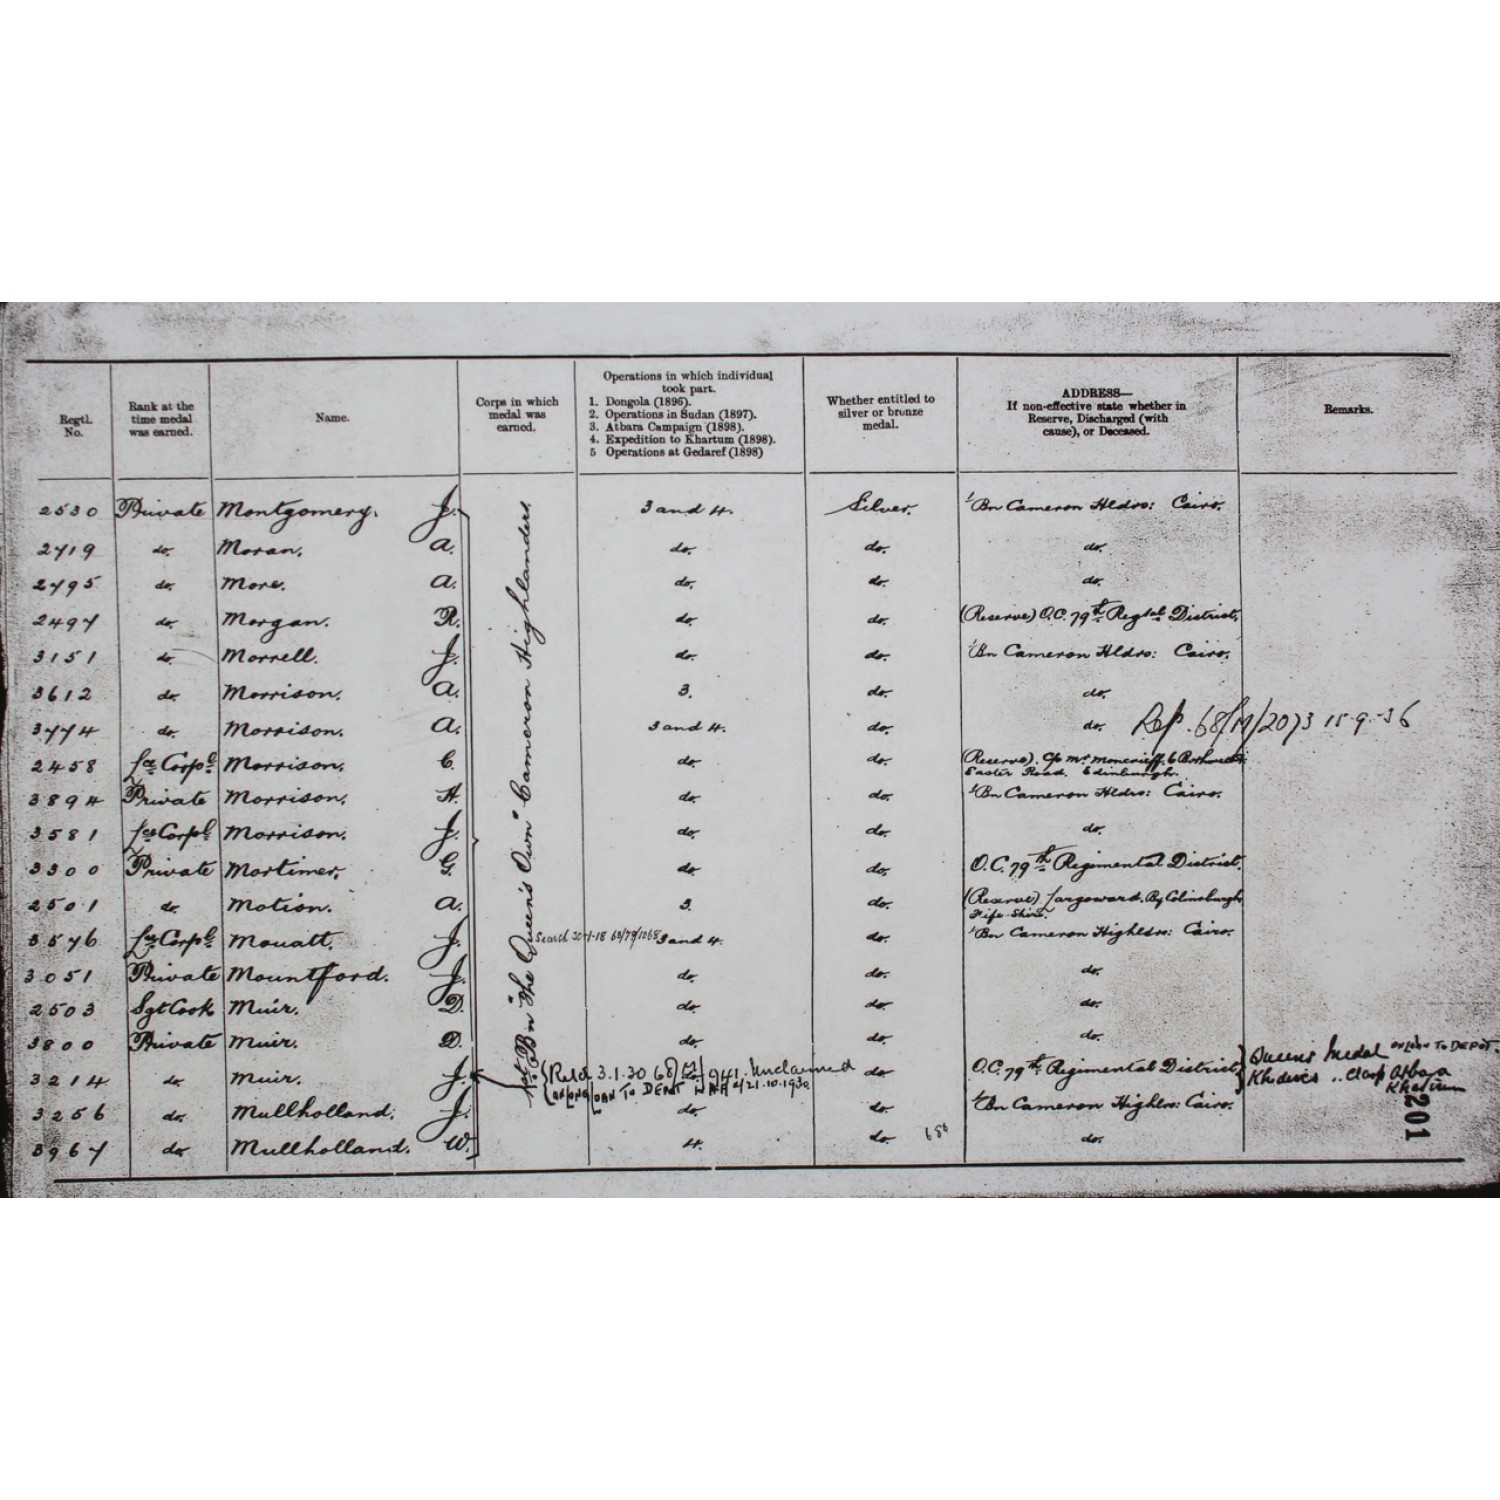 Regtl. No. Rank at the time medal was earned. Name. Corps in which medal was earned. Operations in which individual took part. 1. Dongola (1896). 2. Operations in Sudan (1897). 3. Atbara Campaign (1898). 4. Expedition to Khartum (1898). 5 Operations at Gedaref (1898) Whether entitled to silver or bronze medal. ADDRESS— If non-effective state whether in Reserve, Discharged (with cause), or Deceased. Remarks.
1st Bn "The Queen's Own" Cameron Highlanders
2530 Private Montgomery. J. 3 and 4. Silver. 1/Bn Cameron Hldrs: Cairo.
2719 do. Moran. A. do. do. do.
2795 do. More. A. do. do. do.
2497 do. Morgan. R. do. do. (Reserve) O.C. 79th Regtal District.
3151 do. Morrell. J. do. do. 1/Bn Cameron Hldrs: Cairo.
3612 do. Morrison. A. 3. do. do.
3774 do. Morrison. A. 3 and 4. do. do. Rep. 68/M/2073 15.9.36
2458 Lce Corpl Morrison. C. do. do. (Reserve). c/o Mr Moncrieff, 6
Easter Road. Edinburgh.
3894 Private Morrison. H. do. do. 1/Bn Cameron Hldrs: Cairo.
3581 Lce Corpl Morrison. J. do. do. do.
3300 Private Mortimer. G. do. do. O.C. 79th Regimental District.
2501 do. Motion. A. 3. do. (Reserve) Largoward, By Colinsburgh,
Fife-Shire.
3576 Lce Corpl Mouatt. J. Search 3 and 4. do. 1/Bn Cameron Highldrs: Cairo.
3051 Private Mountford. J. do. do. do.
2503 Sgt Cook Muir. D. do. do. do.
3800 Private Muir. D. do. do. do.
3214 do. Muir. J. Retd 3.1.30 68/ /941. Unclaimed do. O.C. 79th Regimental District. Queens Medal on loan TO DEPOT.
ON LONG LOAN TO DEPOT 21.10.1930 Khedives " Clasp Atbara
Khartum
3256 do. Mullholland. J. do. do. 1/Bn Cameron Highrs: Cairo.
3967 do. Mullholland. W. 4. do. 686 do.
201